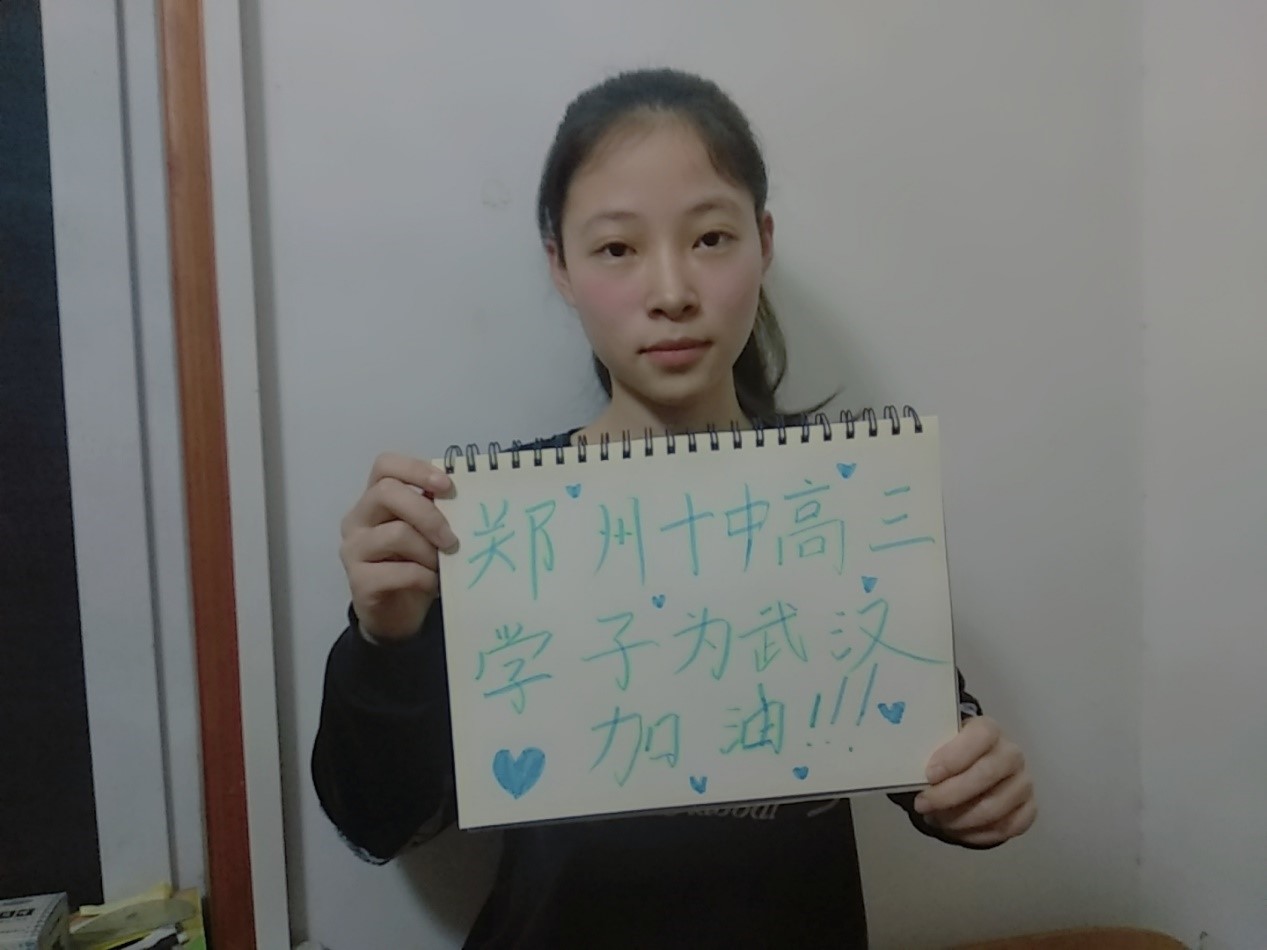 郑州十中高三
学子为武汉
加油!!!